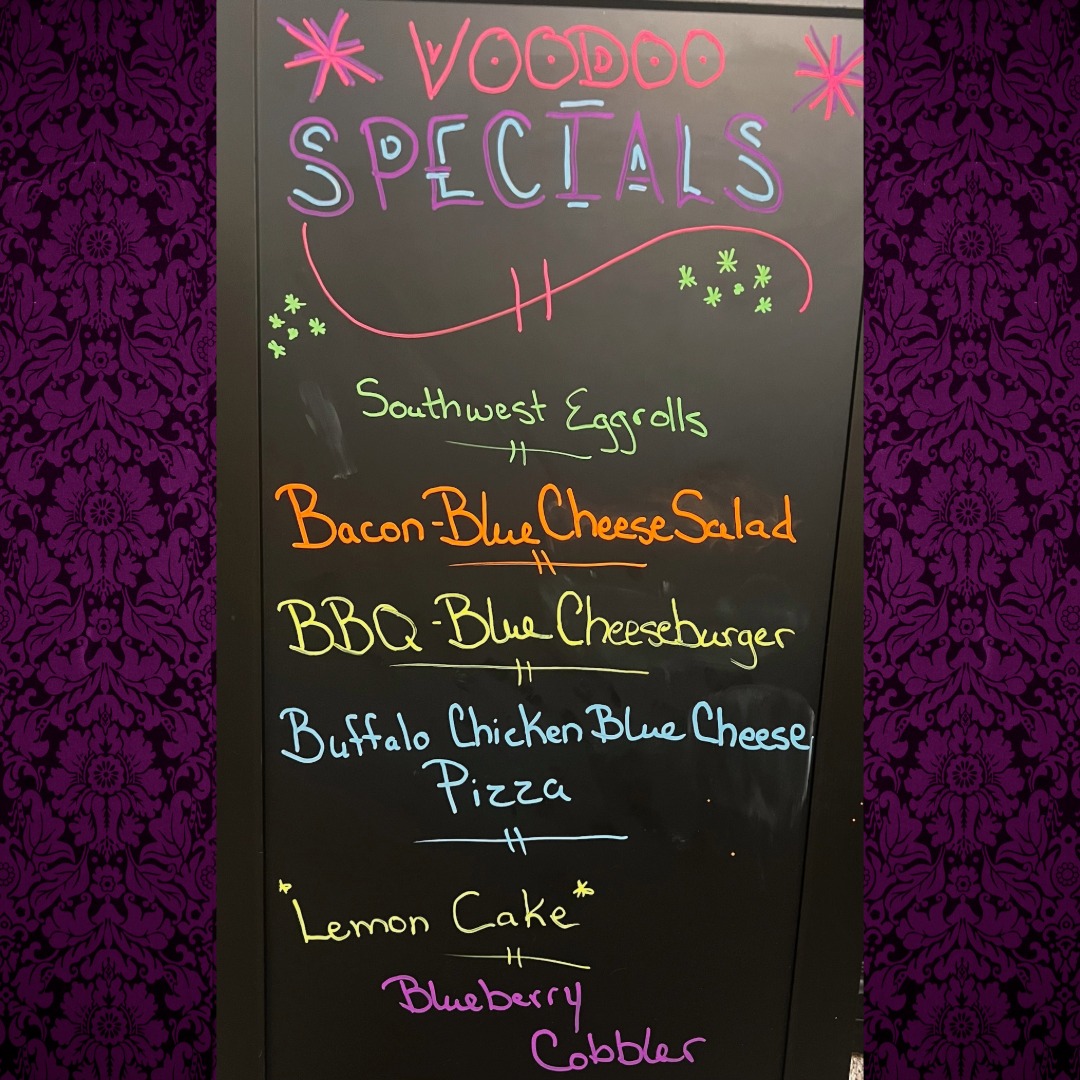 VOODOO
SPECIALS
Southwest Eggrolls
Bacon-Blue Cheese Salad
BBQ-Blue Cheeseburger
Buffalo Chicken Blue Cheese
Pizza
*Lemon Cake*
Blueberry
Cobbler